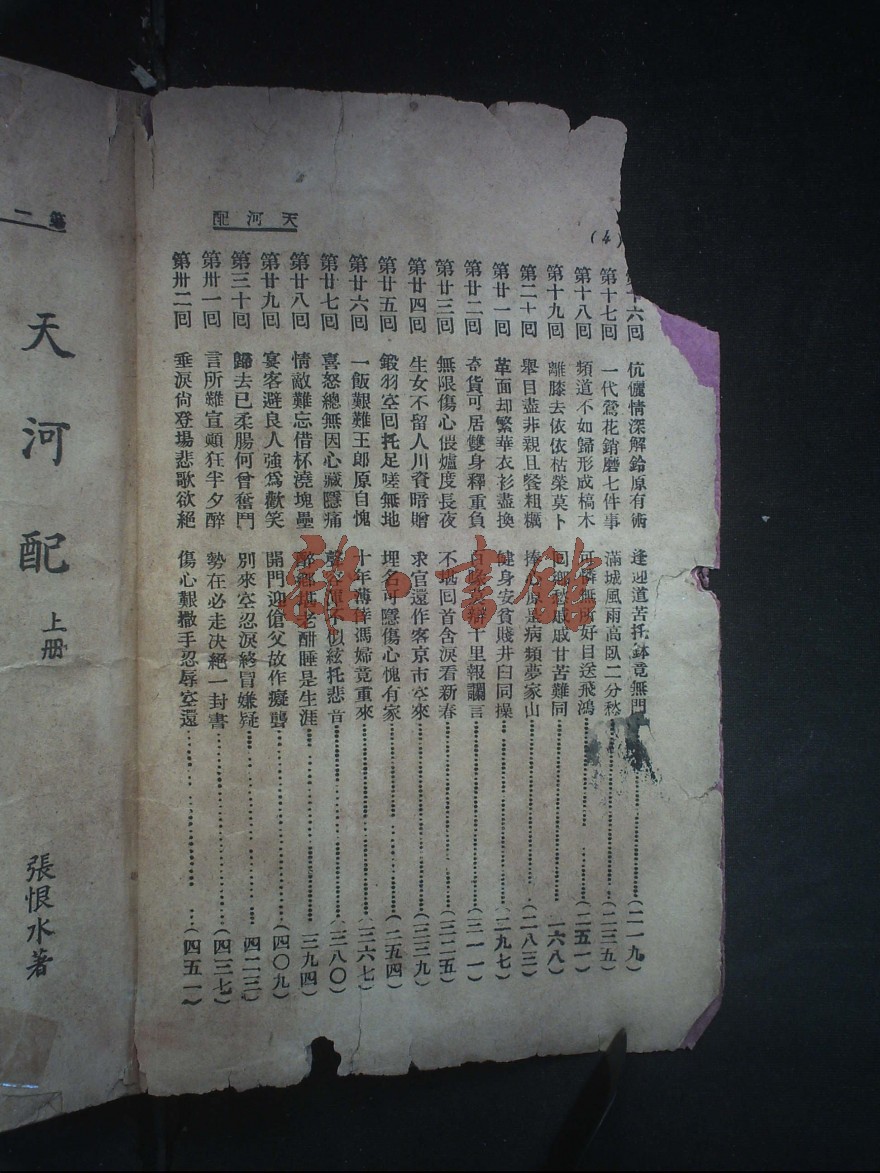 (4)
天河配
十六回 伉儷情深解鈴原有術 逢迎道苦托鉢竟無門………(二一九)
第十七回 一代鶯花銷磨七件事 滿城風雨高臥二分愁………(二三五)
第十八回 頻道不如歸形成槁木 可憐無 好目送飛鴻………(二五一)
第十九回 離膝去依依枯榮莫卜 回鄉愁戚戚甘苦難同………二六八)
第二十回 舉目盡非親且餐粗糲 捧心原是病頻夢家山………(二八三)
第廿一回 革面却繁華衣衫盡換 健身安貧賤井臼同操………二九七)
第廿二回 奇貨可居雙身釋重負 百 千里報讕言………(三一一)
第廿三回 無限傷心偎爐度長夜 不堪回首含淚看新春………(三二五)
第廿四回 生女不留人川資暗贈 求官還作客京市空來………(三三九)
第廿五回 鎩羽空回托足嗟無地 埋名可隱傷心愧有家………(二五四)
第廿六回 一飯艱難王郎原自愧 十年薄倖馮婦竟重來………(三六七)
第廿七回 喜怒總無因心藏隱痛 聲容 絃托悲音………(三八〇)
第廿八回 情敵難忘借杯澆塊壘 醉鄉 老酣睡是生涯………三九四)
第廿九回 宴客避良人強爲歡笑 開門迎傖父故作癡聾………(四〇九)
第三十回 歸去已柔腸何曾奮鬥 別來空忍淚終冒嫌疑………四二三)
第卅一回 言所難宣頗狂半夕醉 勢在必走決絕一封書………(四三七)
第卅二回 垂淚尙登場悲歌欲絕 傷心艱撒手忍辱空還………(四五一)
第二
天河配 上册
張恨水著
雜·書館